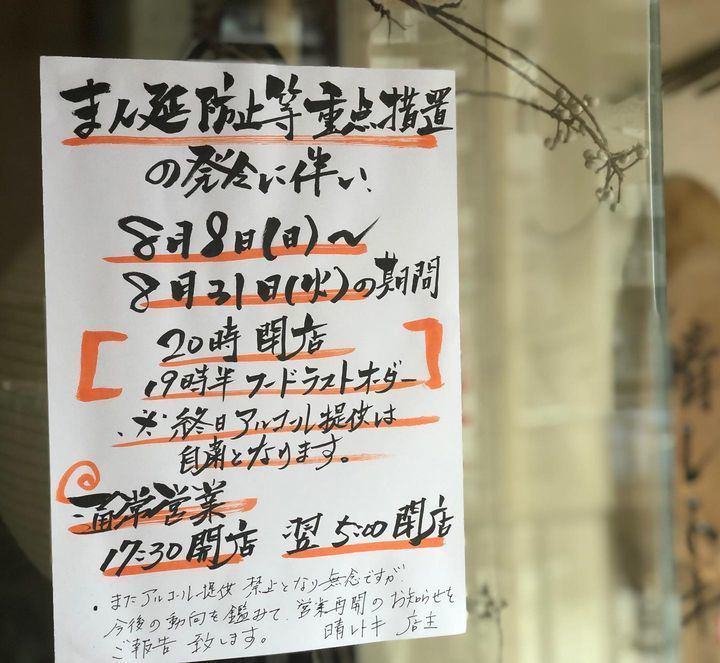 まん延防止等重点措置
の発令に伴い、
8月8日(日)〜
8月31日(火)の期間
20時閉店
19時半フードラストオーダー
※終日アルコール提供は
自粛となります。
通常営業
17:30開店 翌5:00閉店
・またアルコール提供禁止となり無念ですが、
今後の動向を鑑みて、営業再開のお知らせを
ご報告致します。 晴レトキ 店主
晴レトキ